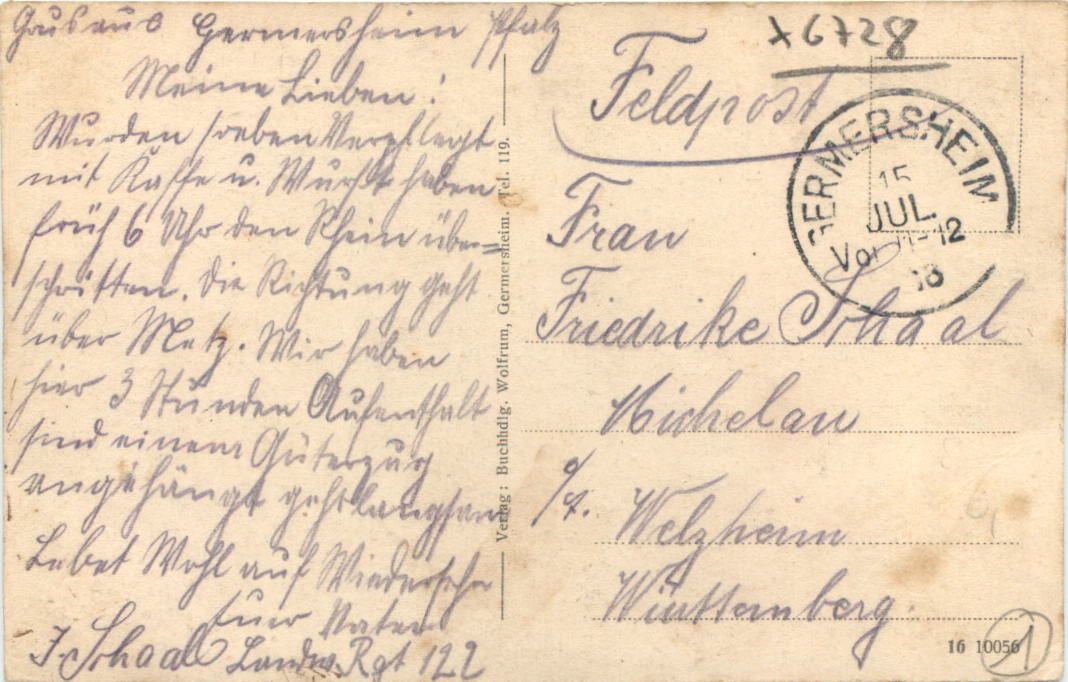 Grus aus Germersheim Pfalz
Meine Lieben!
Wurden soeben Verpflegt
mit Kaffe u. Wurst haben
früh 6 Uhr den Rhein über=
schritten. Die Richtung geht
über Metz. Wir haben
hier 3 Stunden Aufenthalt
sind einem Güterzug
angehängt geht langsam
Lebet Wohl auf Wiedersehn
Euer Vater
J. Schaal Landw. Rgt 122
Verlag: Buchhdlg. Wolfrum, Germersheim. Tel. 119.
+ 6728
Feldpost
GERMERSHEIM
15
JUL.
Vor 11-12
18
Frau
Friedrike Schaal
Michelau
Welzheim
Württemberg.
16 10056
1